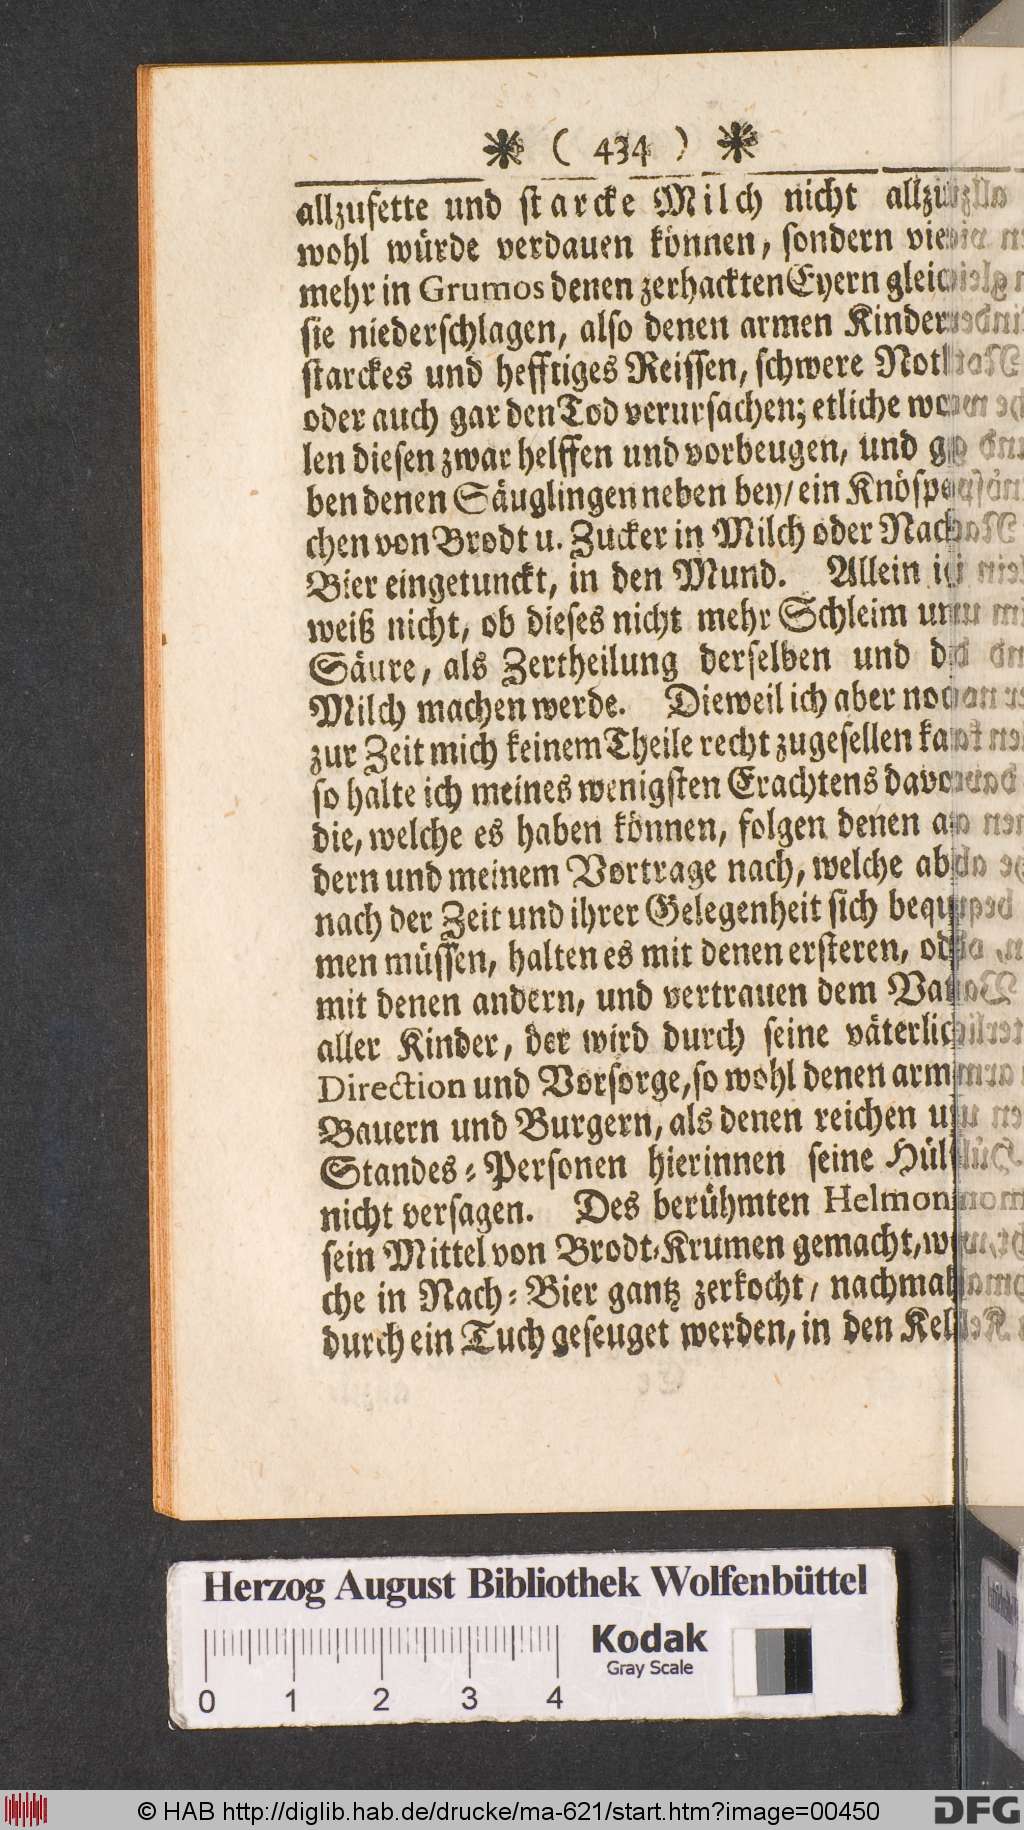 ( 434 )
allzufette und starcke Milch nicht allzu
wohl würde verdauen können, sondern vie
mehr in Grumos denen zerhackten Eyern gleich
sie niederschlagen, also denen armen Kinder
starckes und hefftiges Reissen, schwere Noth
oder auch gar den Tod verursachen; etliche wo
len diesen zwar helffen und vorbeugen, und g
ben denen Säuglingen neben bey/ ein Knöspe
chen von Brodt u. Zucker in Milch oder Nach
Bier eingetunckt, in den Mund. Allein i
weiß nicht, ob dieses nicht mehr Schleim un
Säure, als Zertheilung derselben und d
Milch machen werde. Dieweil ich aber noc
zur Zeit mich keinem Theile recht zugesellen ka
so halte ich meines wenigsten Erachtens davo
die, welche es haben können, folgen denen a
dern und meinem Vortrage nach, welche ab
nach der Zeit und ihrer Gelegenheit sich bequ
men müssen, halten es mit denen ersteren, od
mit denen andern, und vertrauen dem Vat
aller Kinder, der wird durch seine väterlic
Direction und Vorsorge, so wohl denen arm
Bauern und Burgern, als denen reichen u
Standes-Personen hierinnen seine Hül
nicht versagen. Des berühmten Helmon
sein Mittel von Brodt-Krumen gemacht, w
che in Nach-Bier gantz zerkocht/ nachmah
durch ein Tuch geseuget werden, in den Kel
Herzog August Bibliothek Wolfenbüttel
Kodak
Gray Scale
0 1 2 3 4
© HAB http://diglib.hab.de/drucke/ma-621/start.htm?image=00450
DFG